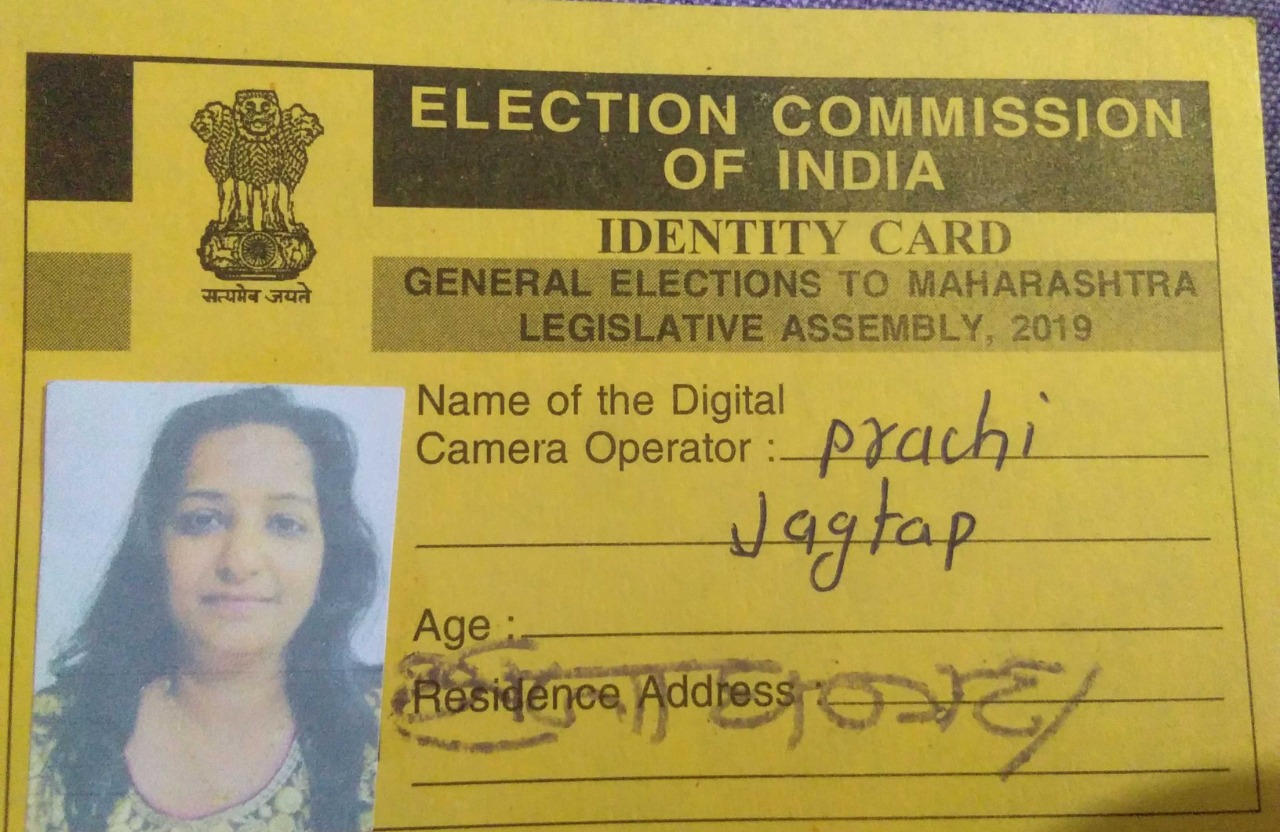 ELECTION COMMISSION
OF INDIA
IDENTITY CARD
GENERAL ELECTIONS TO MAHARASHTRA
LEGISLATIVE ASSEMBLY, 2019
सत्यमेव जयते
Name of the Digital
Camera Operator : Prachi
Jagtap
Age :
Residence Address :